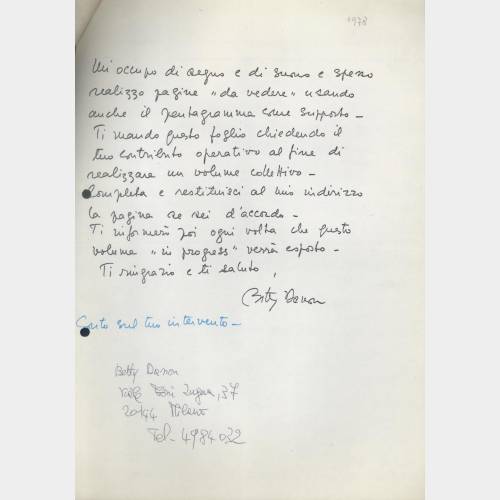 1978
Mi occupo di segno e di suono e spesso
realizzo pagine "da vedere" usando
anche il pentagramma come supporto -
Ti mando questo foglio chiedendo il
tuo contributo operativo al fine di
realizzare un volume collettivo -
Completa e restituisci al mio indirizzo
la pagina se sei d'accordo -
Ti informerò poi ogni volta che questo
volume "in progress" verrà esposto -
Ti ringrazio e ti saluto,
Betty Danon
Conto sul tuo intervento -
Betty Danon
Zugna, 37
20144 Milano
Tel - 4984032